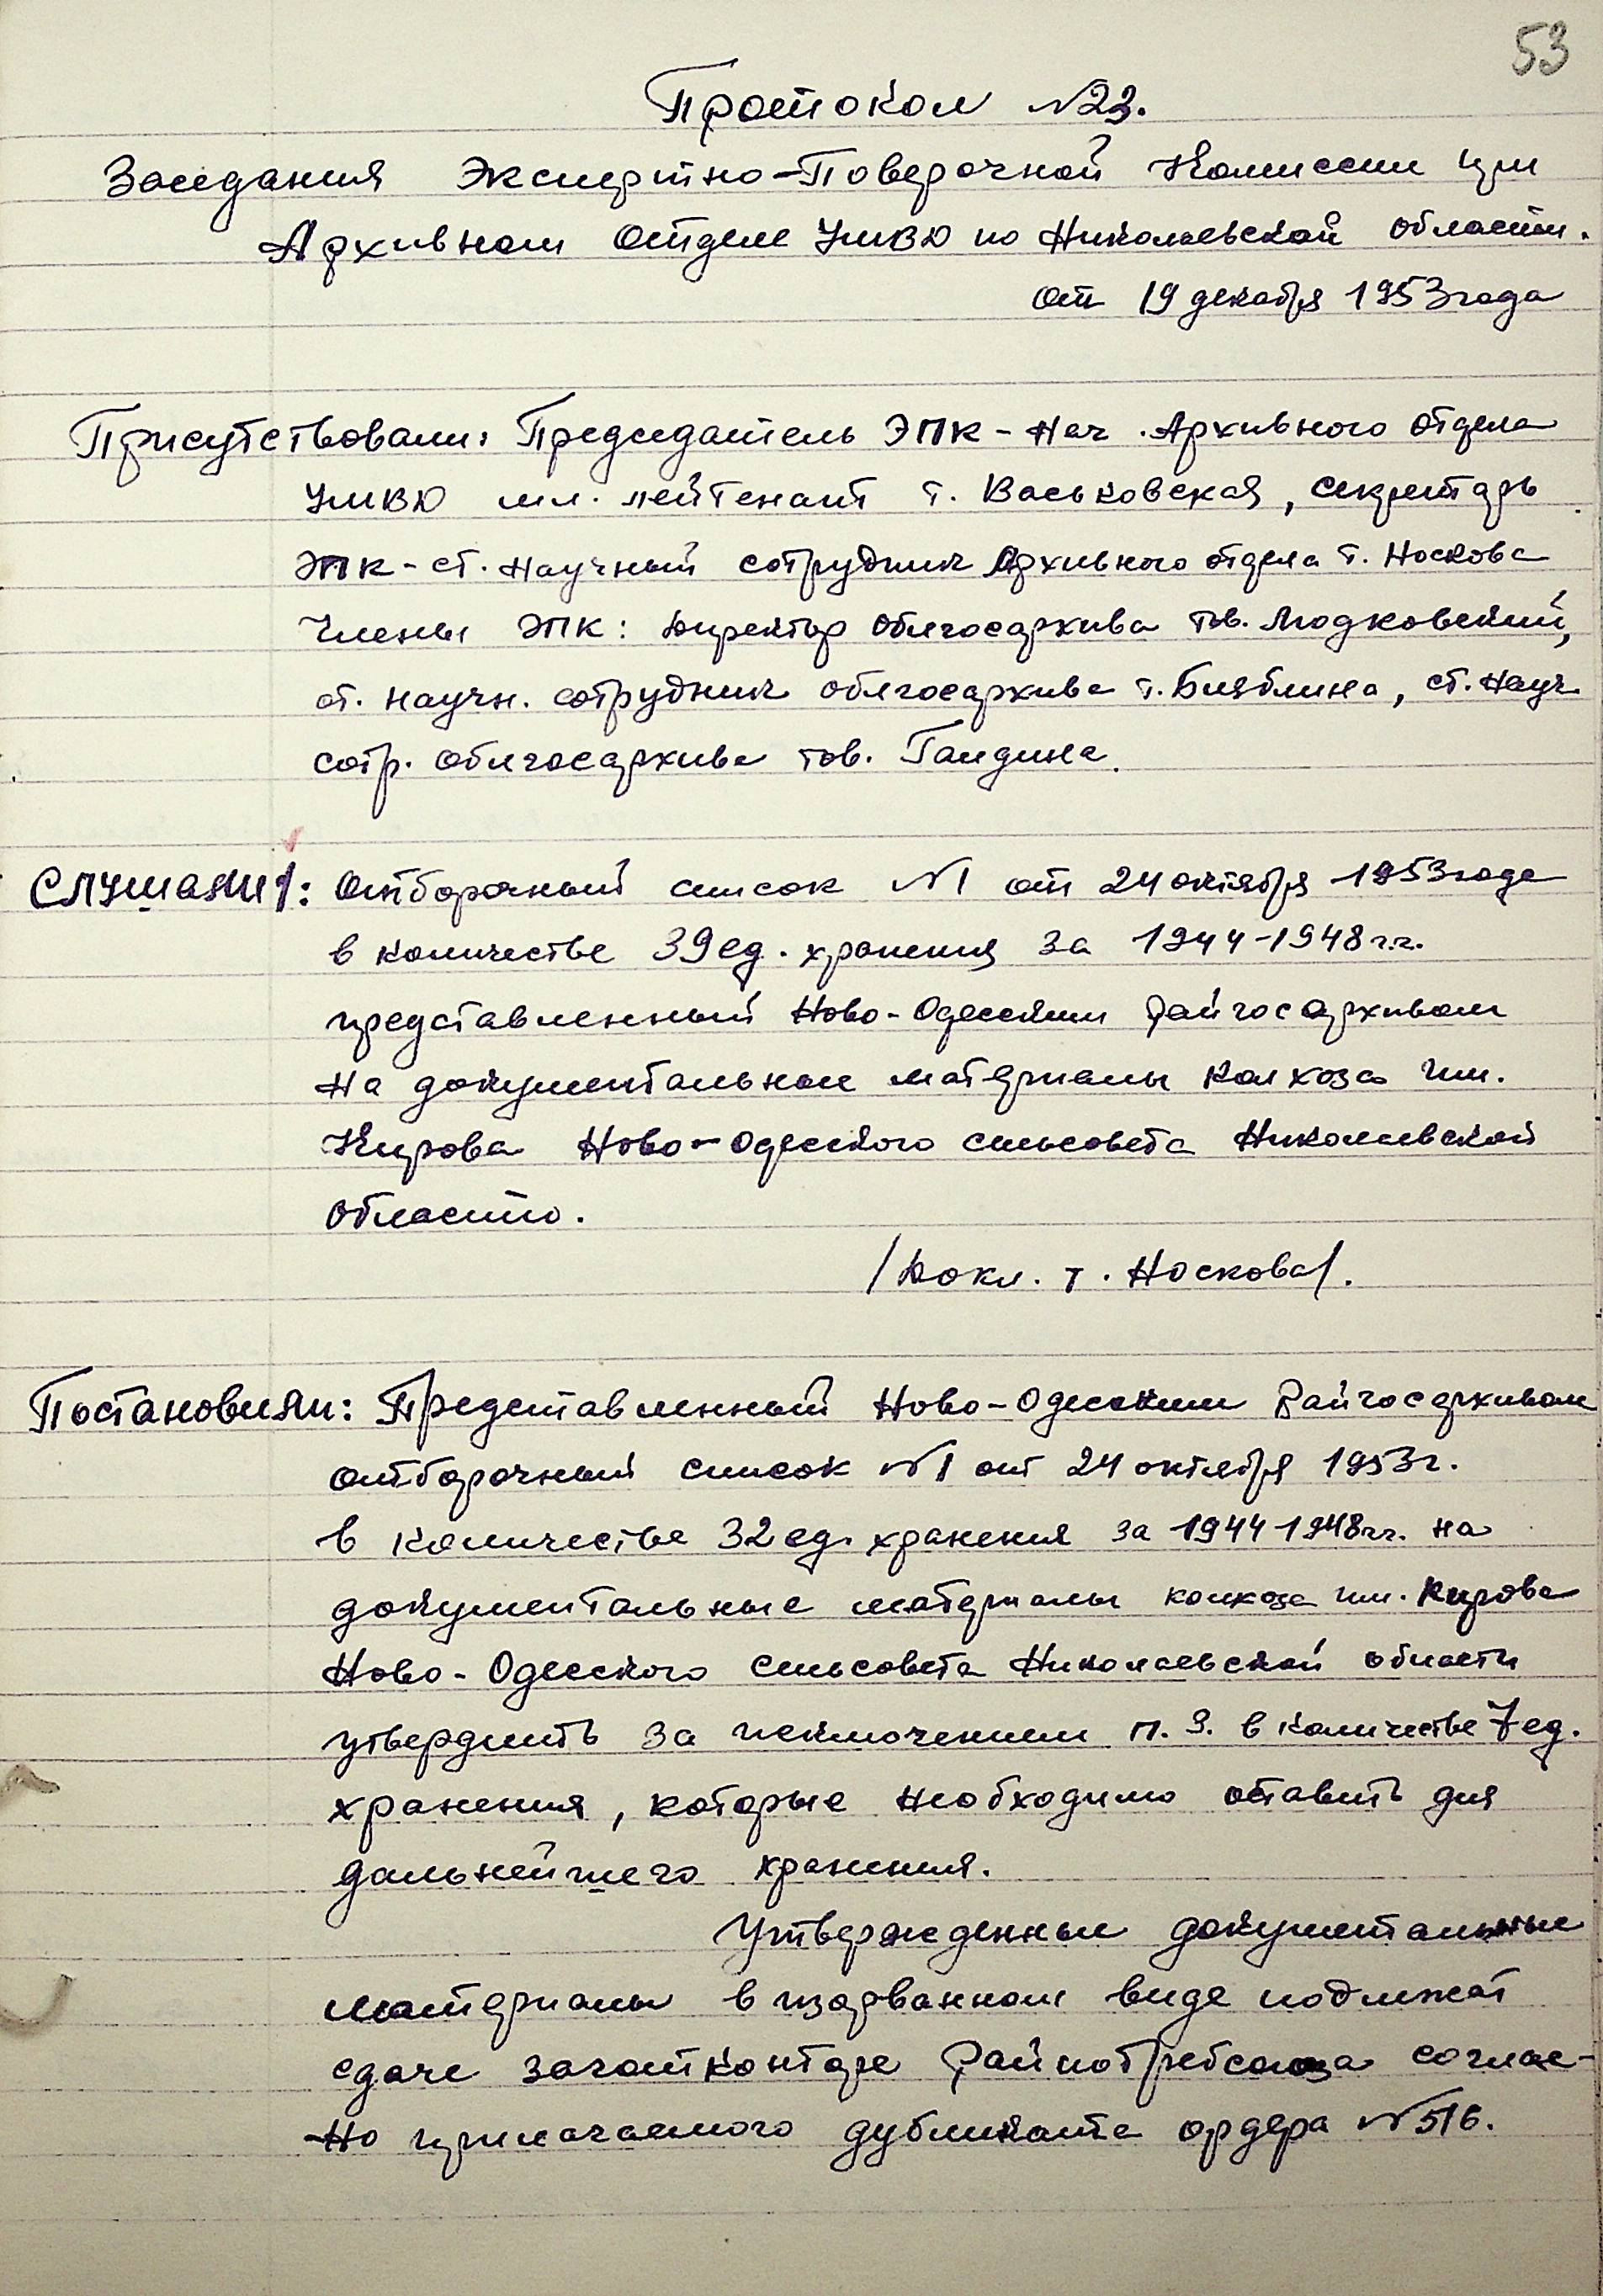 53
Протокол №23.
Заседания Экспертно-Поверочной Комиссии при
Архивном Отделе УМВД по Николаевской области.
от 19 декабря 1953 года
Присутствовали: Председатель ЭПК - Нач. Архивного отдела
УМВД мл. лейтенант т. Васьковская, секретарь
ЭПК - ст. научный сотрудник Архивного отдела т. Носкова
Члены ЭПК: Директор облгосархива тов. Людковский,
ст. научн. сотрудник облгосархива т. Библина, ст. науч.
сотр. облгосархива тов. Гандина.
Слушали: Отборочный список №1 от 24 октября 1953 года
в количестве 39 ед. хранения за 1944-1948 г.г.
представленный Ново-Одесским райгосархивом
на документальные материалы колхоза им.
Кирова Ново-Одесского сельсовета Николаевской
области.
/Докл. т. Носкова/.
Постановили: Представленный Ново-Одесским райгосархивом
отборочный список №1 от 24 октября 1953 г.
в количестве 32 ед. хранения за 1944 1948 гг. на
документальные материалы колхоза им. Кирова
Ново-Одесского сельсовета Николаевской области
утвердить за исключением п. 3. в количестве 7 ед.
хранения, которые необходимо оставить для
дальнейшего хранения.
Утвержденные документальные
материалы в изорванном виде подлежат
сдаче заготконторе Райпотребсоюза соглас-
но прилагаемого дубликата ордера №516.